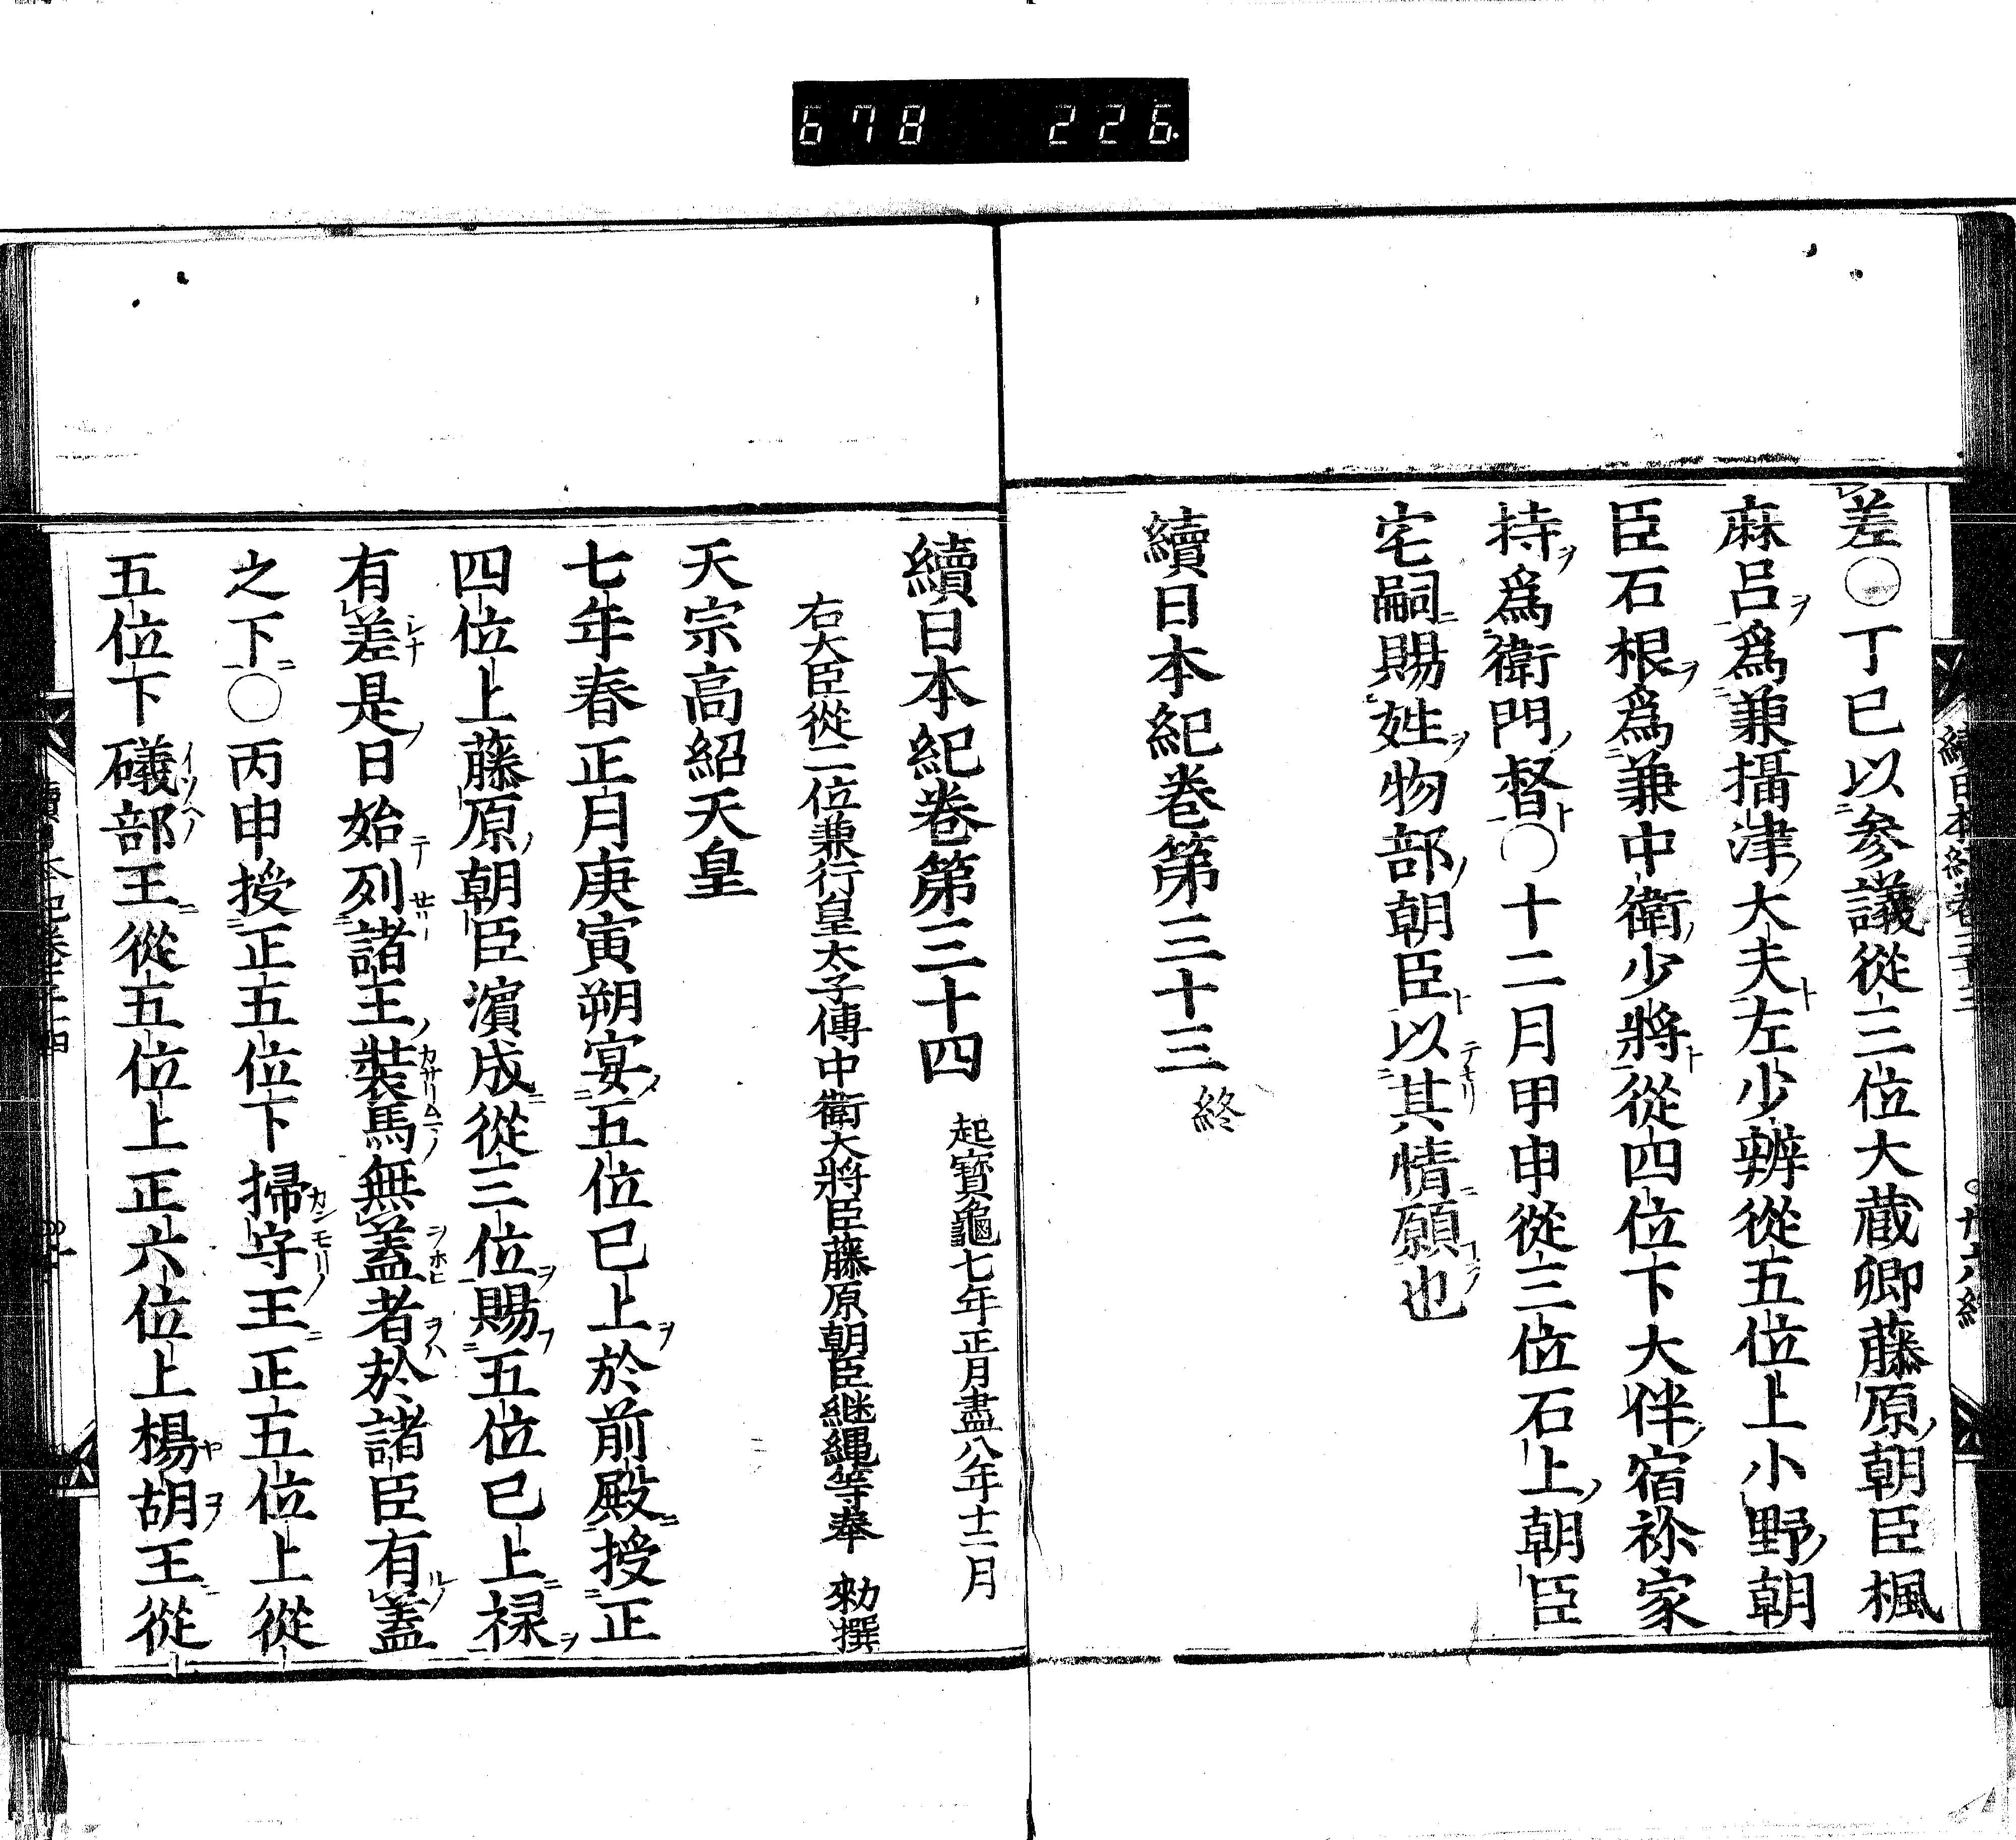 678 226
差○丁巳以参議從三位大蔵卿藤原朝臣楓
麻呂爲兼攝津大夫左少辨從五位上小野朝
臣石根爲兼中衛少將從四位下大伴宿祢家
持爲衛門督○十二月甲申從三位石上朝臣
宅嗣賜姓物部朝臣以其情願也
續日本紀巻第三十三 終
續日本紀巻第三十四 起寳龜七年正月盡八年十二月
右大臣從二位兼行皇太子傳中衛大將臣藤原朝臣継縄等奉 勅撰
天宗高紹天皇
七年春正月庚寅朔宴五位已上於前殿授正
四位上藤原朝臣濱成從三位賜五位已上禄
有差是日始列諸王装馬無蓋者於諸臣有蓋
之下○丙申授正五位下掃守王正五位上從
五位下礒部王從五位上正六位上楊胡王從